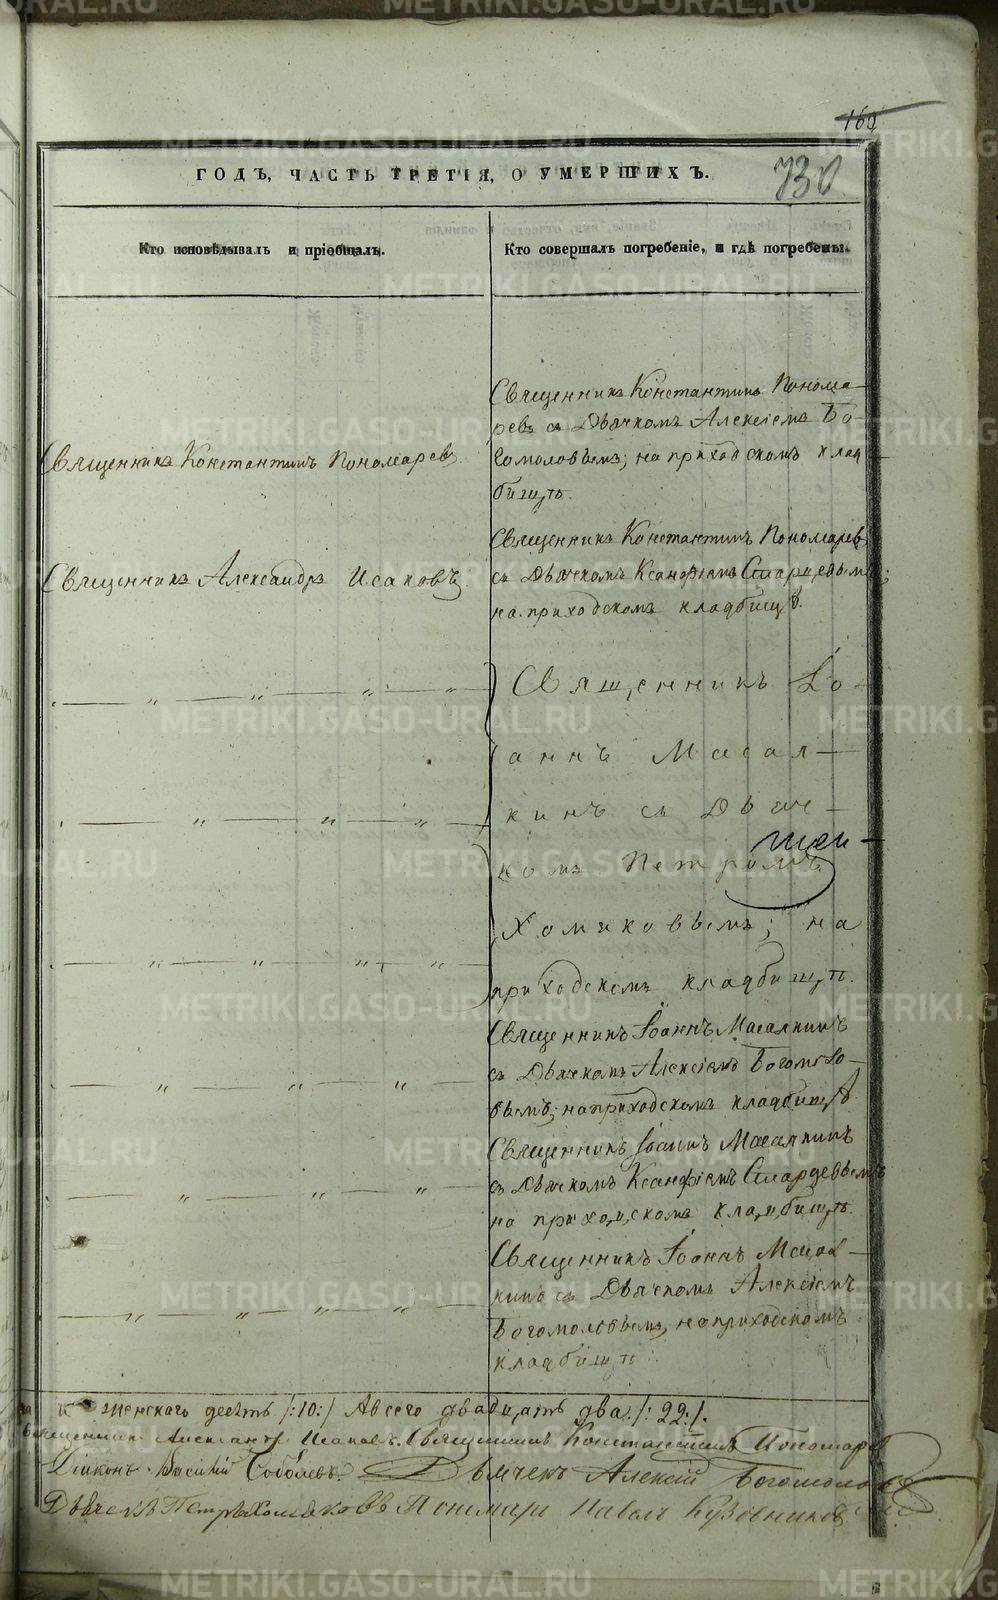 METRIKI.GASO-URAL.RU
162
730
ГОДЪ, ЧАСТЬ ТРЕТІЯ, О УМЕРШИХЪ.
Кто исповѣдывалъ и пріобщалъ.
Кто совершалъ погребеніе, и гдѣ погребены.
Священникъ Константинъ Пономаревъ
Священникъ Константинъ Понома-
ревъ съ Дьячкомъ Алексіемъ Бо-
гомоловымъ; на приходскомъ клад-
бищѣ.
Священникъ Александръ Исаковъ
Священникъ Константинъ Пономаревъ
съ Дьячкомъ Ксанфіемъ Смарцевымъ;
на приходскомъ кладбищѣ.
Священникъ Іо-
аннъ Масал-
кинъ съ Дьяч-
комъ Петромъ
Хомяковымъ; на
приходскомъ кладбищѣ.
Священникъ Іоаннъ Масалкинъ
съ Дьячкомъ Алексіемъ Богомоло-
вымъ; на приходскомъ кладбищѣ
Священникъ Іоаннъ Масалкинъ
съ Дьячкомъ Ксанфіемъ Смарцевымъ
на приходскомъ кладбищѣ.
Священникъ Іоаннъ Масал-
кинъ съ Дьячкомъ Алексіемъ
Богомоловымъ, на приходскомъ
кладбищѣ
женскаго десять /:10:/ А всего двадцать два /:22:/.
Священникъ Александръ Исаковъ. Священникъ Константинъ Пономарев
Діаконъ Василій Соболевъ. Дьячекъ Алексій Богомолов
Дьячекъ Петръ Хомяковъ Пономарь Павелъ Кузовников